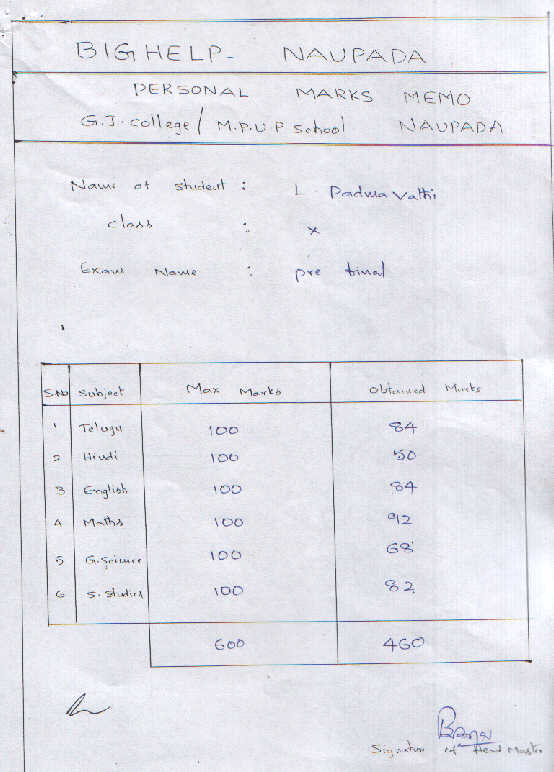 BIG HELP- NAUPADA
PERSONAL MARKS MEMO
G.J. college / M.P.U.P School NAUPADA
Name of student : L. Padma Vathi
class : X
Exam Name : pre final
S.No Subject Max Marks Obtained Marks
1 Telugu 100 84
2 Hindi 100 50
3 English 100 84
4 Maths 100 92
5 G.Science 100 68
6 S. Studies 100 82
600 460
Signature of Head Master